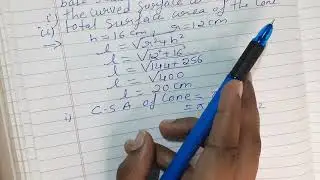 i) the curved surface
ii) total surface area of the cone
→ h = 16 cm, r = 12 cm
l = √r²+h²
l = √12²+16²
l = √144+256
l = √400
l = 20 cm
i) C.S.A of Cone =
= π